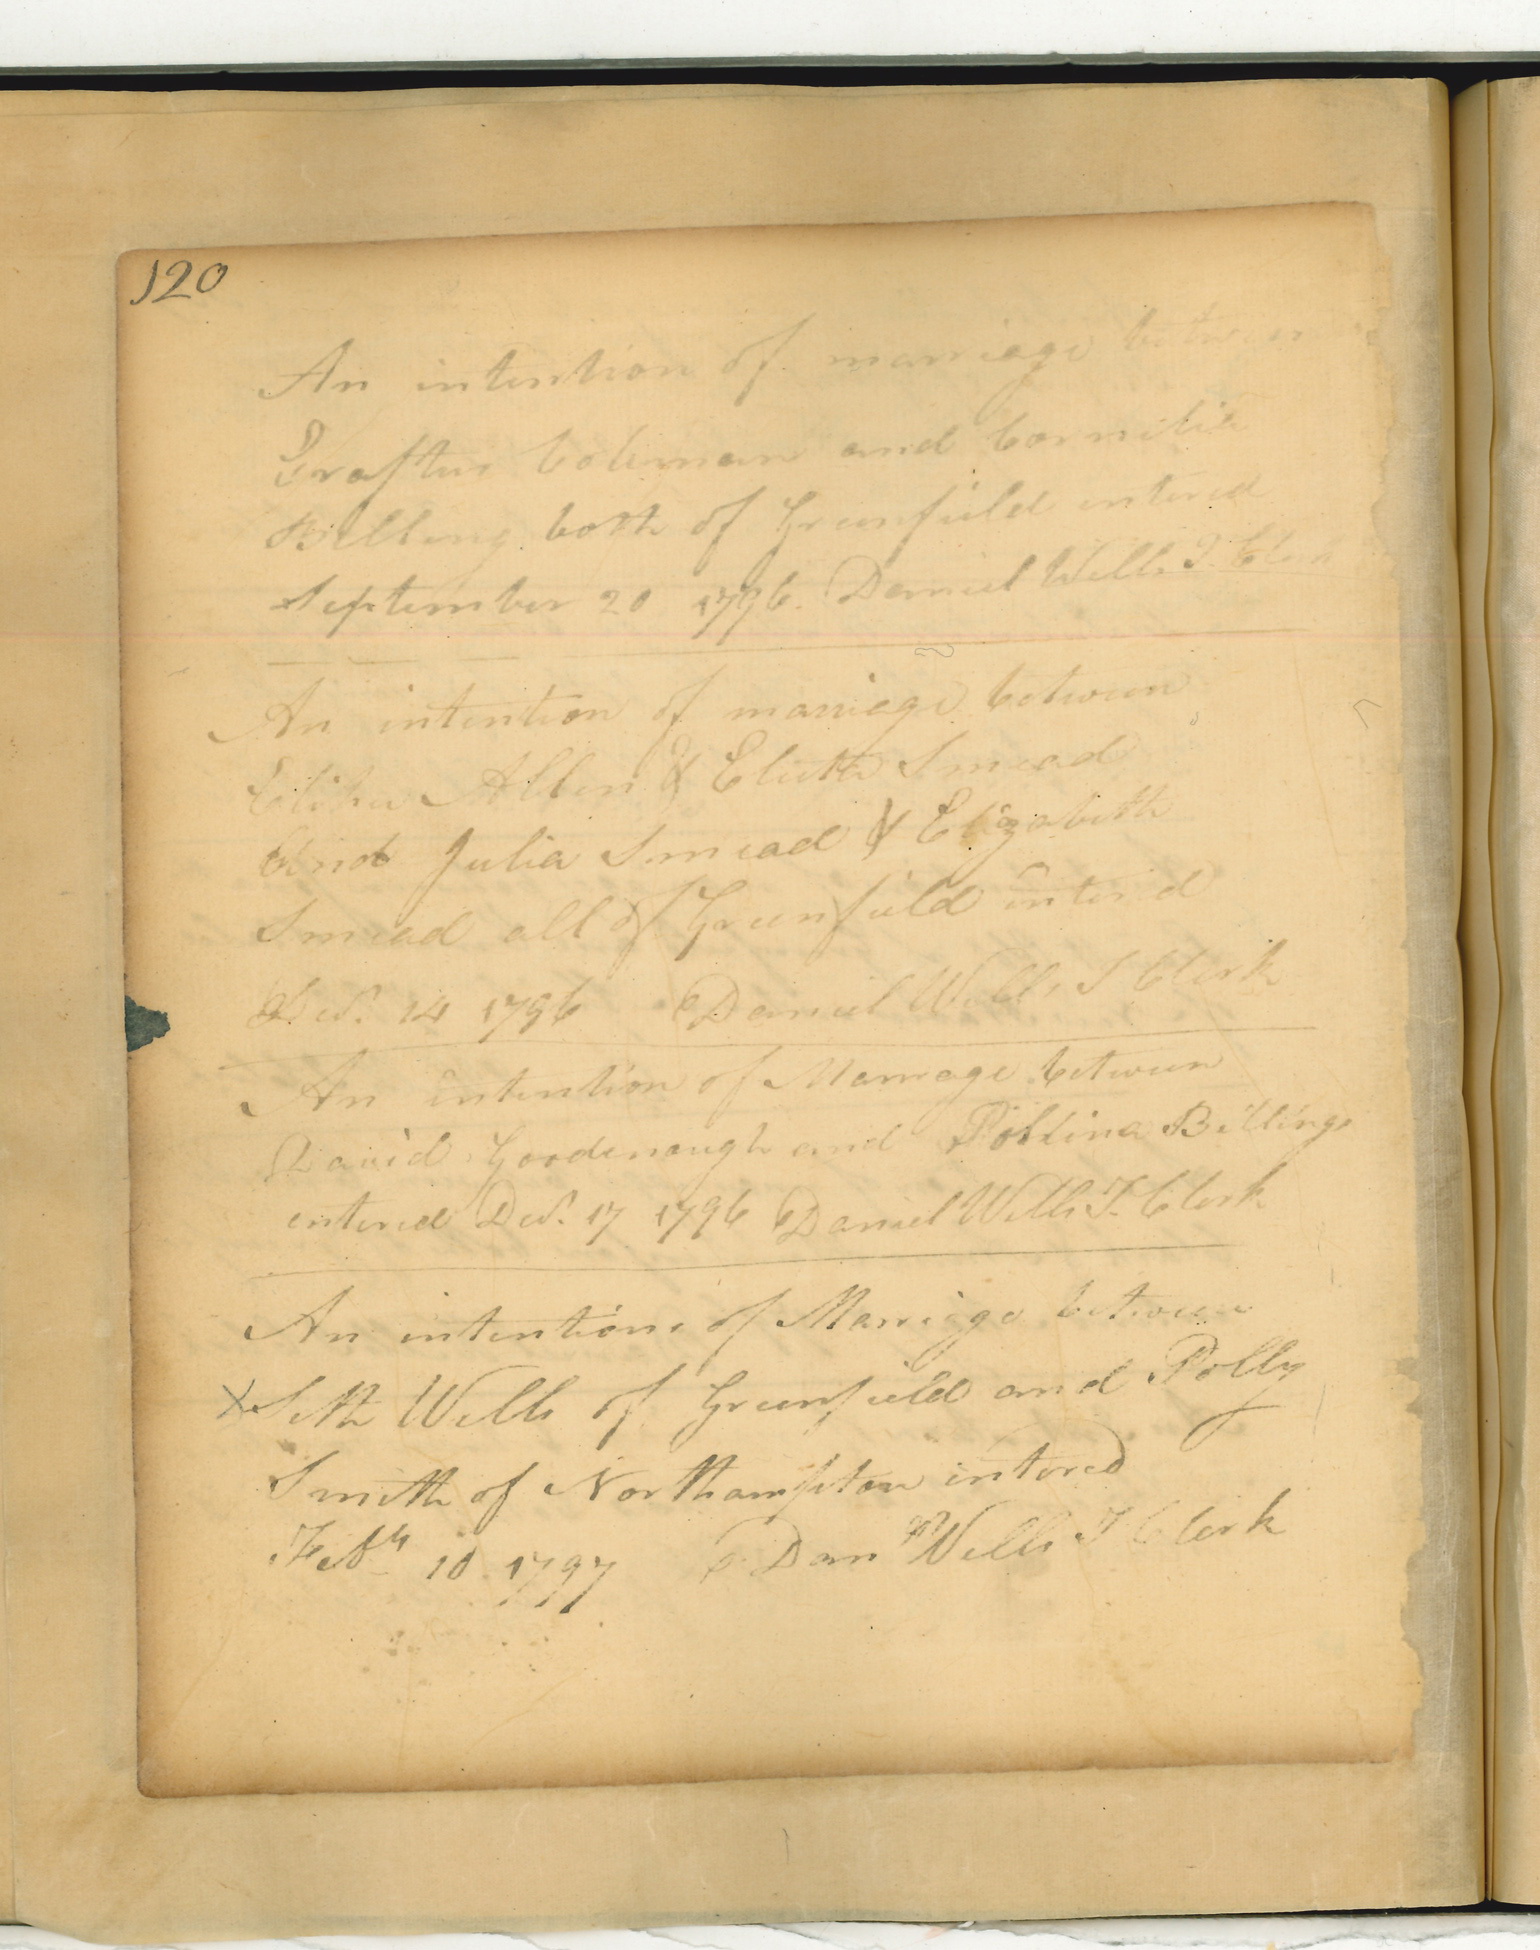 120
An intention of marriage between
Coleman and Cornelia
Billing both of Greenfield entered
September 20 1796. Daniel Wells T. Clerk
An intention of marriage between
Elihu Allen & Smead
And Julia Smead & Elizabeth
Smead all of Greenfield entered
Decr. 14 1796 Daniel Wells T Clerk
An intention of Marriage between
David Goodenough and Billings
entered Decr. 17 1796 Daniel Wells T. Clerk
An intentions of Marriage between
X Seth Wells of Greenfield and Polly
Smith of Northampton entered
Feby 10 1797 Dan Wells T Clerk